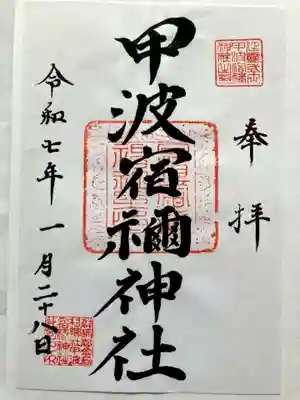 奉拝
甲波宿禰神社
令和七年 一月二十八日